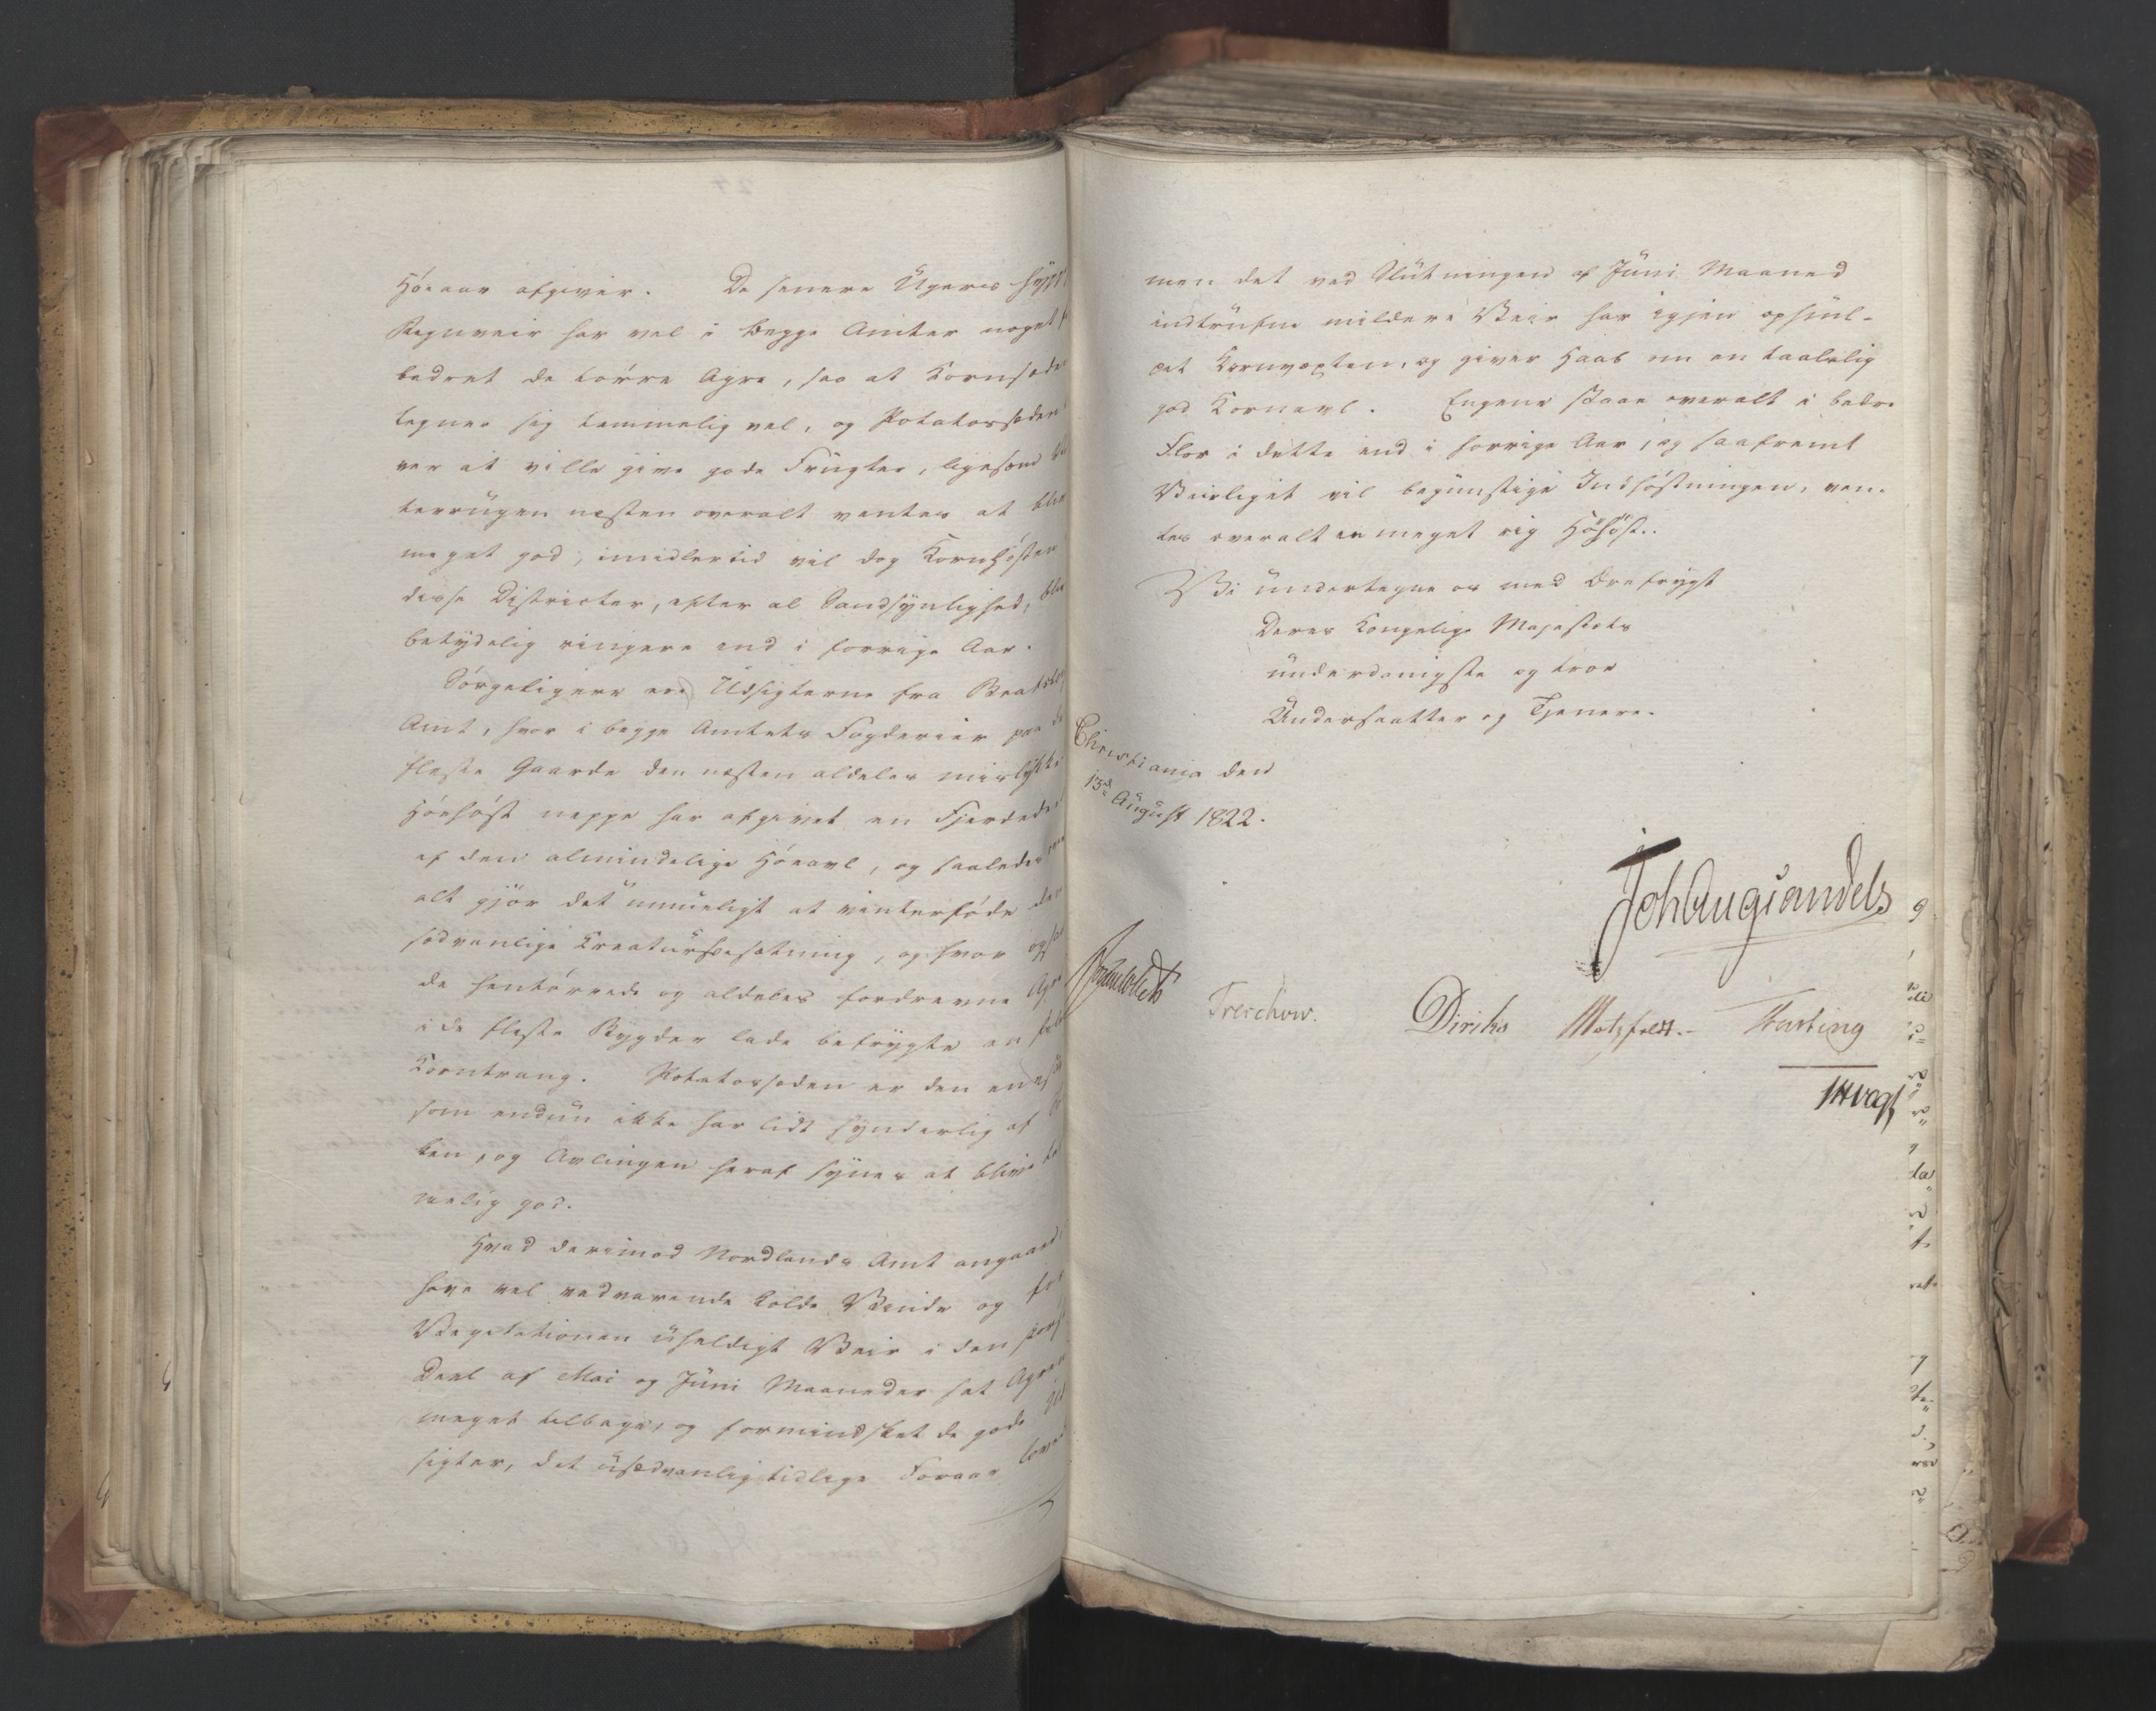 Höeaar afgiver. De senere Ugers hypp
Regnveir har vel i begge Amter noget
bedret de törre Agre, saa at Kornsæden
tegner sig temmelig vel, og Potatossæden
ver at ville give gode Frugter, ligesom
terrugen næsten overalt ventes at blive
meget god, imidlertid vil dog Kornhösten
disse Districter, efter al Sandsynlighed, blive
betydelig ringere end i forrige Aar.
Sörgeligere ere Udsigterne fra Bratsberg
Amt, hvor i begge Amtets Fogderier paa de
fleste Gaarde den næsten aldeles mislykke
Höehöst neppe har afgivet en Fjerdedeel
af den almindelige Höeavl, og saaledes
alt gjör det umueligt at vinterföde den
sædvanlige Creaturbesætning, og hvor ogsaa
de hentörrede og aldeles fordrevne Agre
i de fleste Bygder lade befrygte en föle
Korntrang. Potatossæden er den eneste
som endnu ikke har lidt synderlig af
ken, og Avlingen heraf synes at blive tem
melig god.
Hvad derimod Nordlands Amt angaaer,
have vel vedvarende kolde Vinde og for
Vegetationen uheldigt Veir i den störste
Deel af Mai og Juni Maaneder sat Agrene
meget tilbage, og formindsket de gode Ud
sigter, det usædvanlig tidlige Foraar lovede
men det ved Slutningen af Juni Maaned
indtrufne mildere Veir har igjen ophjul-
pet Kornvæxten, og giver Haab om en taalelig
god Kornavl. Engene staae overalt i bedre
Flor i dette end i forrige Aar, og saafremt
Veirliget vil begunstige Indhöstningen, ven-
tes overalt en meget rig Höhöst..
Vi undertegne os med Ærefrygt
Deres Kongelige Majestæts
underdanigste og troe
Undersaatter og Tjenere.
Christiania den
13de August 1822.
Joh Aug Sandels
Sommerhielm Treschow. Diriks Motzfeldt.- Fasting
JHVogt